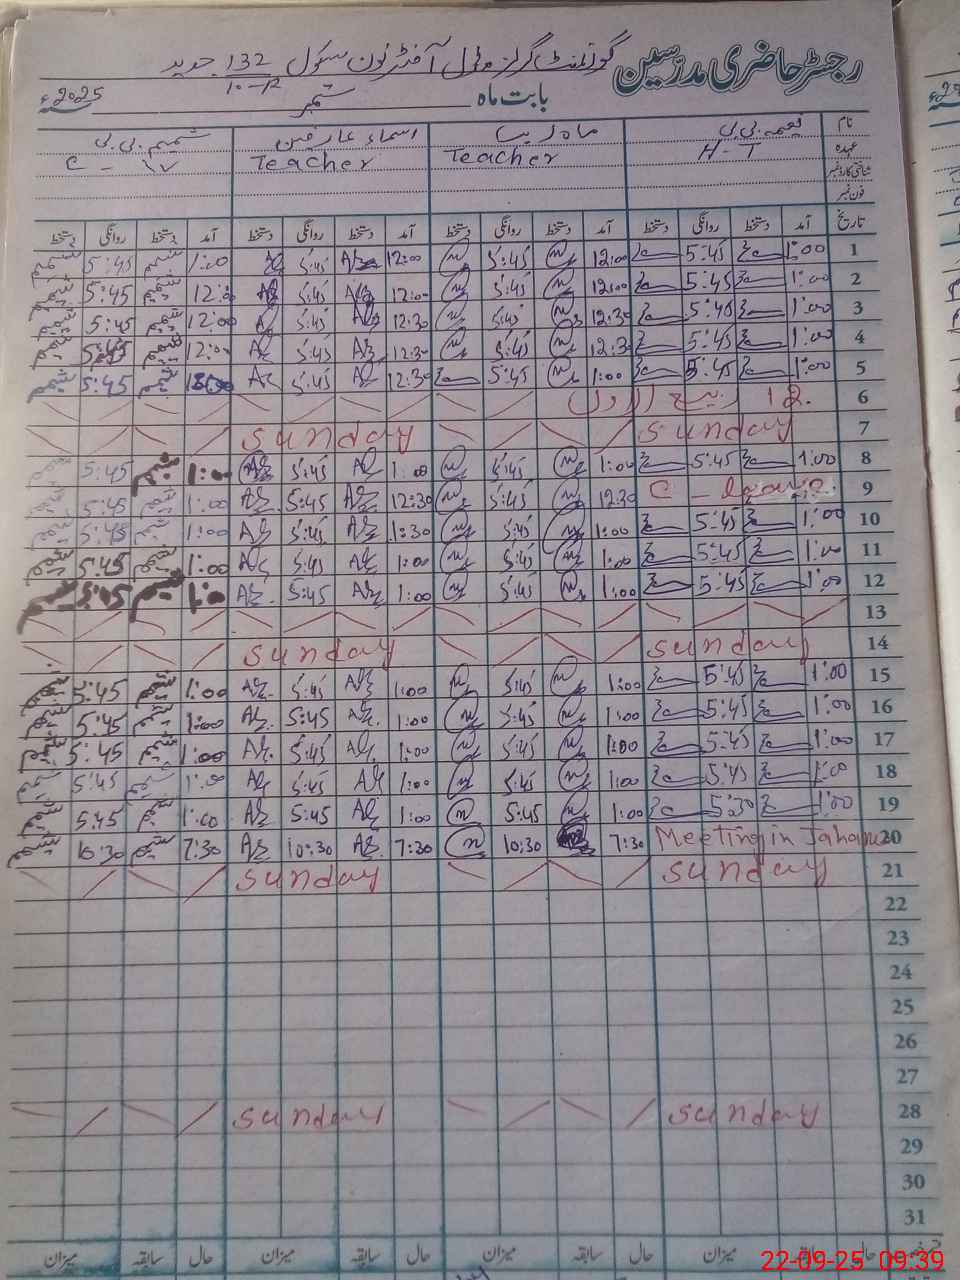 رجسٹر حاضری مدرسین گورنمنٹ گرلز ماڈل آفٹر نون سکول 132 جدید
10-R
بابت ماہ ستمبر 2025ء
نام نعیمہ بی بی ماہ زیب اسماء عارفین شمیم بی بی
عہدہ H-T Teacher Teacher C-IV
شناختی کارڈ نمبر
فون نمبر
تاریخ آمد دستخط روانگی دستخط آمد دستخط روانگی دستخط آمد دستخط روانگی دستخط آمد دستخط روانگی دستخط
1 1:00 5:45 12:00 5:45 12:00 5:45 1:00 5:45
2 1:00 5:45 12:00 5:45 12:00 5:45 12:00 5:45
3 1:00 5:45 12:30 5:45 12:30 5:45 12:00 5:45
4 1:00 5:45 12:30 5:45 12:30 5:45 12:00 5:45
5 1:00 5:45 1:00 5:45 12:30 5:45 5:45
6 12 ربیع الاول
7 Sunday Sunday
8 1:00 5:45 1:00 5:45 1:00 5:45 1:00 5:45
9 C - Leave 12:30 5:45 12:30 5:45 1:00 5:45
10 1:00 5:45 1:00 5:45 1:30 5:45 1:00 5:45
11 1:00 5:45 1:00 5:45 1:00 5:45 1:00 5:45
12 1:00 5:45 1:00 5:45 1:00 5:45 1:00 5:45
13
14 Sunday Sunday
15 1:00 5:45 1:00 5:45 1:00 5:45 1:00 5:45
16 1:00 5:45 1:00 5:45 1:00 5:45 1:00 5:45
17 1:00 5:45 1:00 5:45 1:00 5:45 1:00 5:45
18 1:00 5:45 1:00 5:45 1:00 5:45 1:00 5:45
19 1:00 5:30 1:00 5:45 1:00 5:45 1:00 5:45
20 Meeting in 7:30 10:30 7:30 10:30 7:30 10:30
21 Sunday Sunday
22
23
24
25
26
27
28 Sunday Sunday
29
30
31
حال سابقہ میزان حال سابقہ میزان حال سابقہ میزان حال سابقہ میزان
22-09-25 09:39